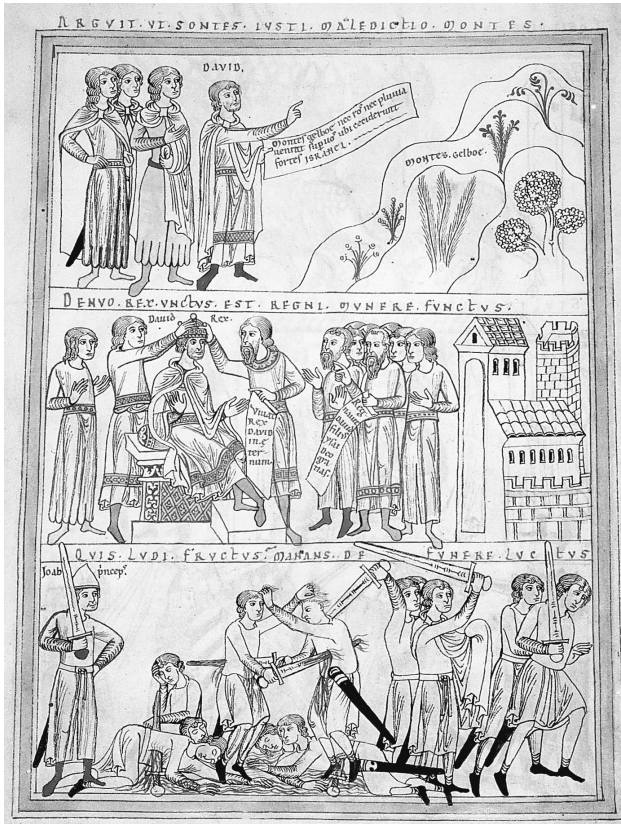 ARGVIT. VT. SONTES. IVSTI. MALEDICTIO. MONTES.
DAVID.
montes gelboe. nec ros nec pluuia
ueniat sup uos ubi ceciderunt
fortes ISRAHEL.
MONTES. Gelboe.
DENVO. REX. VNCTVS. EST. REGNI. MVNERE. FVNCTVS.
David Rex.
VIVAT
REX
DAVID
IN. Ę
ter
num.
Deo
gra
tias.
QVIS. LVDI. FRVCTVS. MANANS. DE FVNERE. LVCTVS
Joab pncep